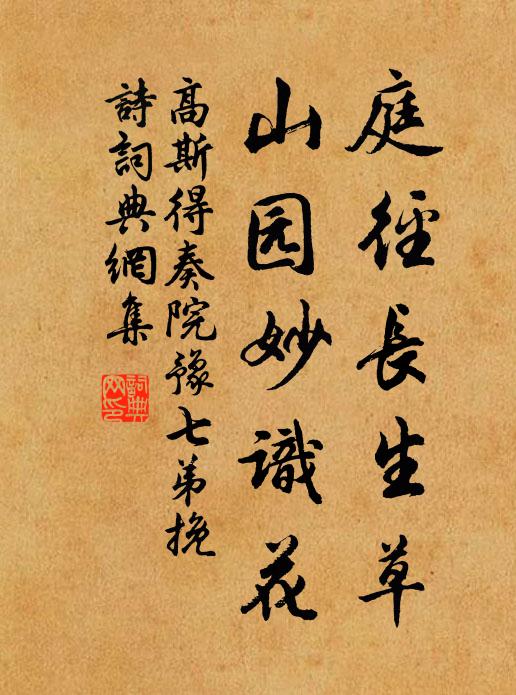 庭徑長生草
山园妙識花
高斯得奏院豫七弟挽
詩詞典網集
詞典
网印